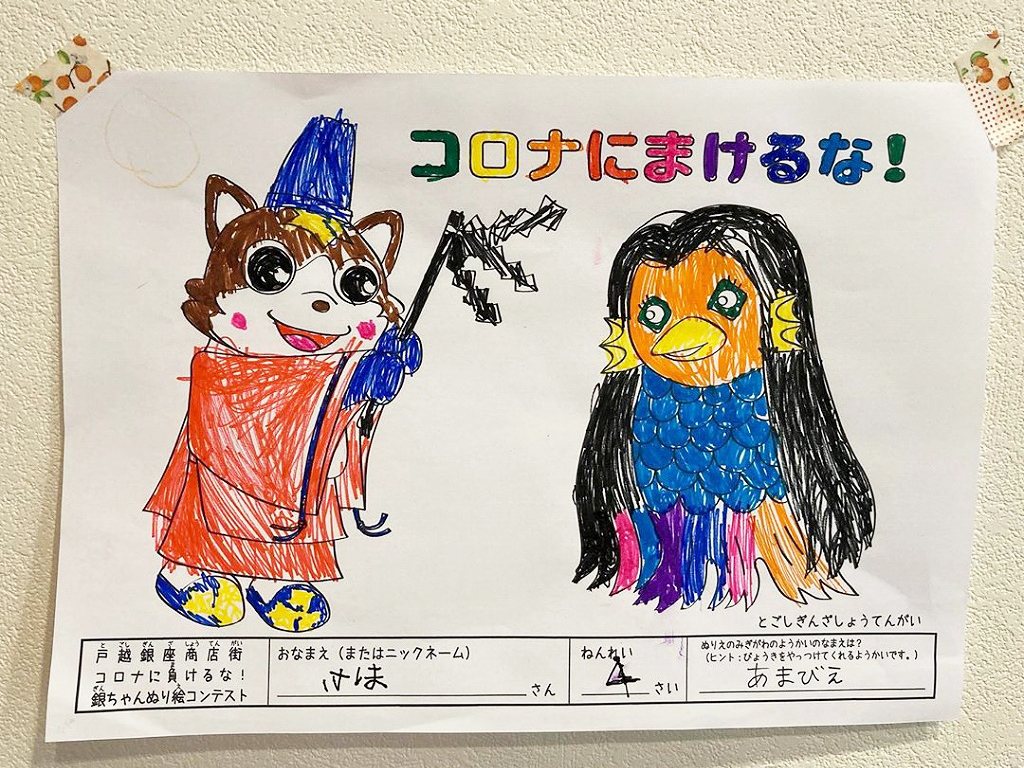 コロナにまけるな!
とごしぎんざしょうてんがい
戸越銀座商店街
コロナに負けるな!
銀ちゃんぬり絵コンテスト
おなまえ(またはニックネーム)
さほ さん
ねんれい
4 さい
ぬりえのみぎがわのようかいのなまえは?
(ヒント:びょうきをやっつけてくれるようかいです。)
あまびえ